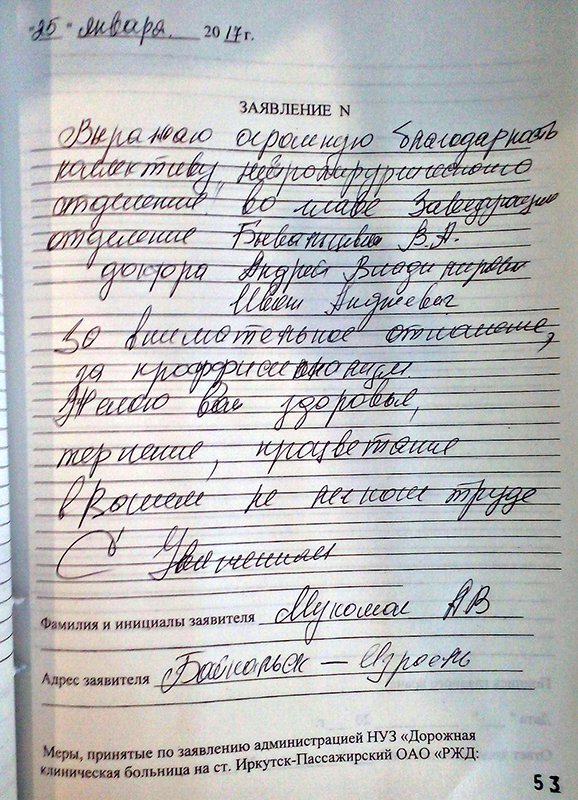 "25" января 2017 г.
ЗАЯВЛЕНИЕ N
Выражаю огромную благодарность
коллективу нейрохирургического
отделение во главе Заведующие
отделение В.А.
доктора Андрей Владимирович
За внимательное отношение,
за проффисионализм
Желаю Вам здоровья,
терпение, процветание
в Вашем не легком труде
С Уважением
Фамилия и инициалы заявителя АВ
Адрес заявителя Байкальск – Израель
Меры, принятые по заявлению администрацией НУЗ «Дорожная
клиническая больница на ст. Иркутск-Пассажирский ОАО «РЖД:
53